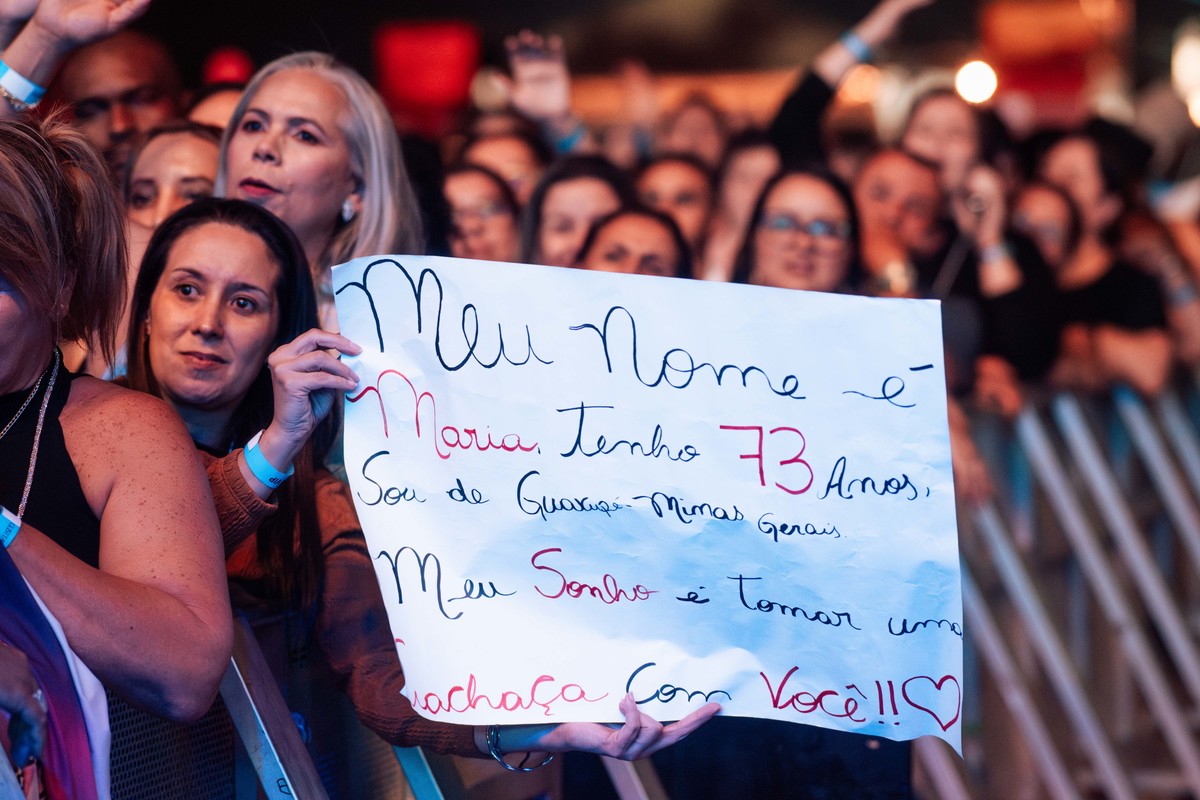 Meu Nome é
Maria, Tenho 73 Anos,
Sou de Guaxupé-Minas Gerais.
Meu Sonho é Tomar uma
Cachaça Com Você!!♡